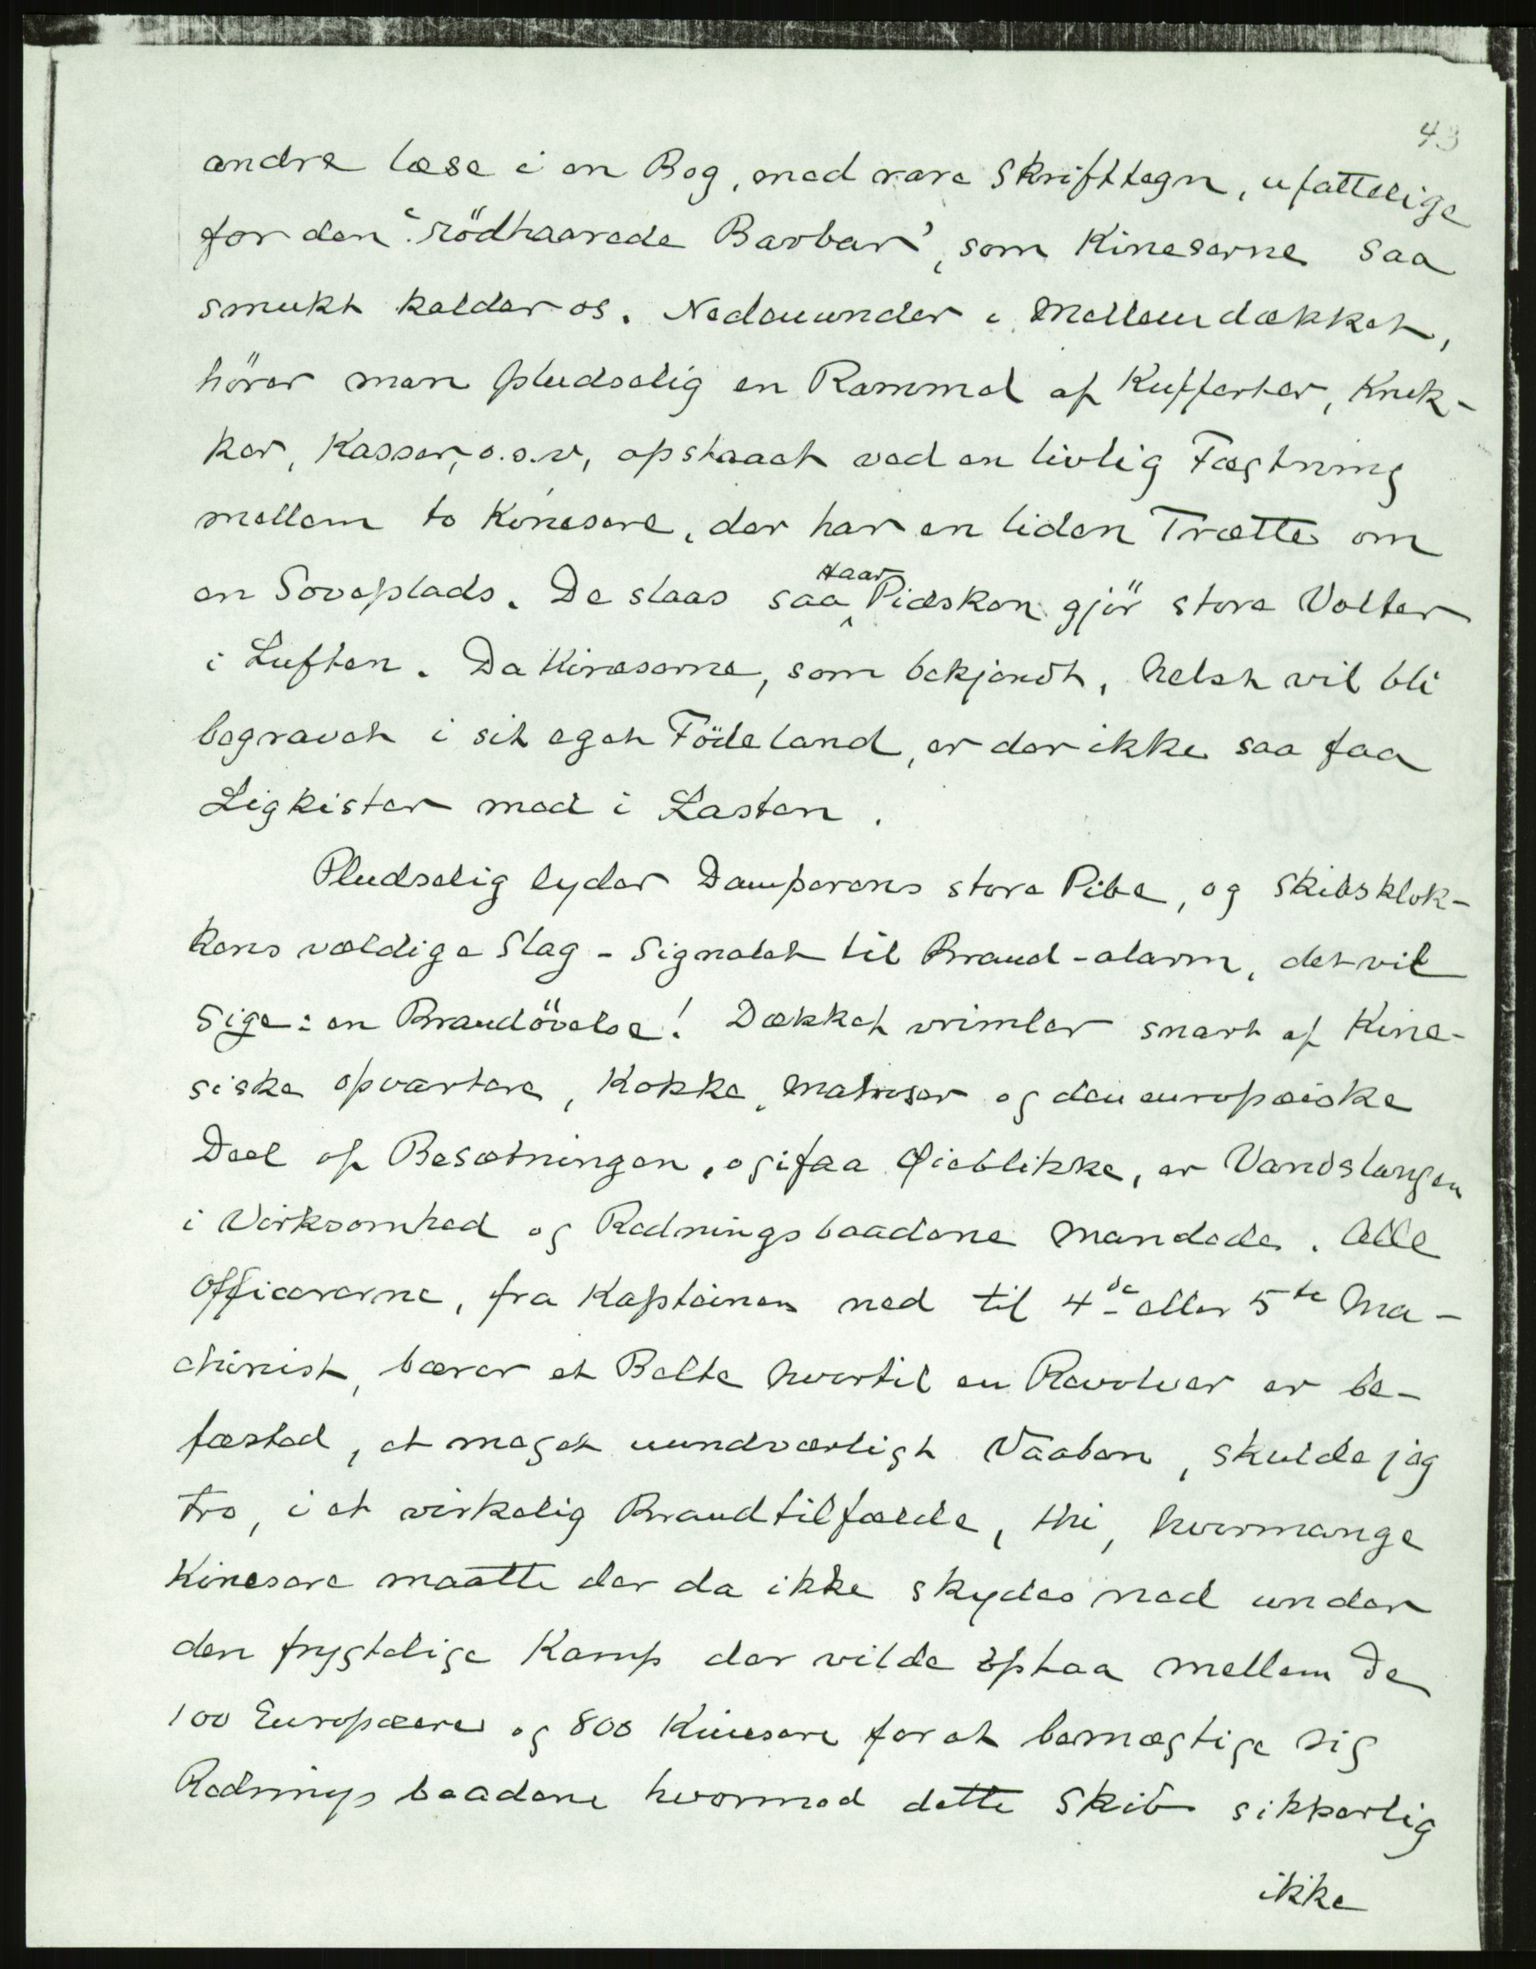 43
andre læse i en Bog, med rare Skrifttegn, ufattelige
for den "rödhaarede Barbar", som Kineserne saa
smukt kalder os. Nedenunder i Mellemdækket,
hörer man pludselig en Rammel af Kufferter, Kruk-
ker, Kasser, o.s.v, opstaaet ved en livlig Fægtning
mellem to Kinesere, der har en liden Trætte om
en Soveplads. De slaas saa Haar Pidsken gjör store Volter
i Luften. Da Kineserne, som bekjendt, helst vil bli
begravet i sit eget Födeland, er der ikke saa faa
Ligkister med i Lasten.
Pludselig lyder Damperens store Pibe, og Skibsklok-
kens vældige Slag - Signalet til Brand-alarm, det vil
sige: en Brandövelse! Dækket vrimler snart af Kine-
siske opvartere, Kokke, Matroser og den europæiske
Deel af Besætningen, og i faa Øieblikke, er Vandslangen
i Virksomhed og Redningsbaadene mandede. Alle
Officererne, fra Kapteinen ned til 4de eller 5te Ma-
chinist, bærer et Belte hvortil en Revolver er be-
fæsted, et meget uundværligt Vaaben, skulde jeg
tro, i et virkelig Brandtilfælde, thi, hvormange
Kinesere maatte der da ikke skydes ned under
den frygtelige Kamp der vilde opstaa mellem De
100 Europæere og 800 Kinesere for at bemægtige sig
Rednings baadene hvormed dette Skib sikkerlig
ikke